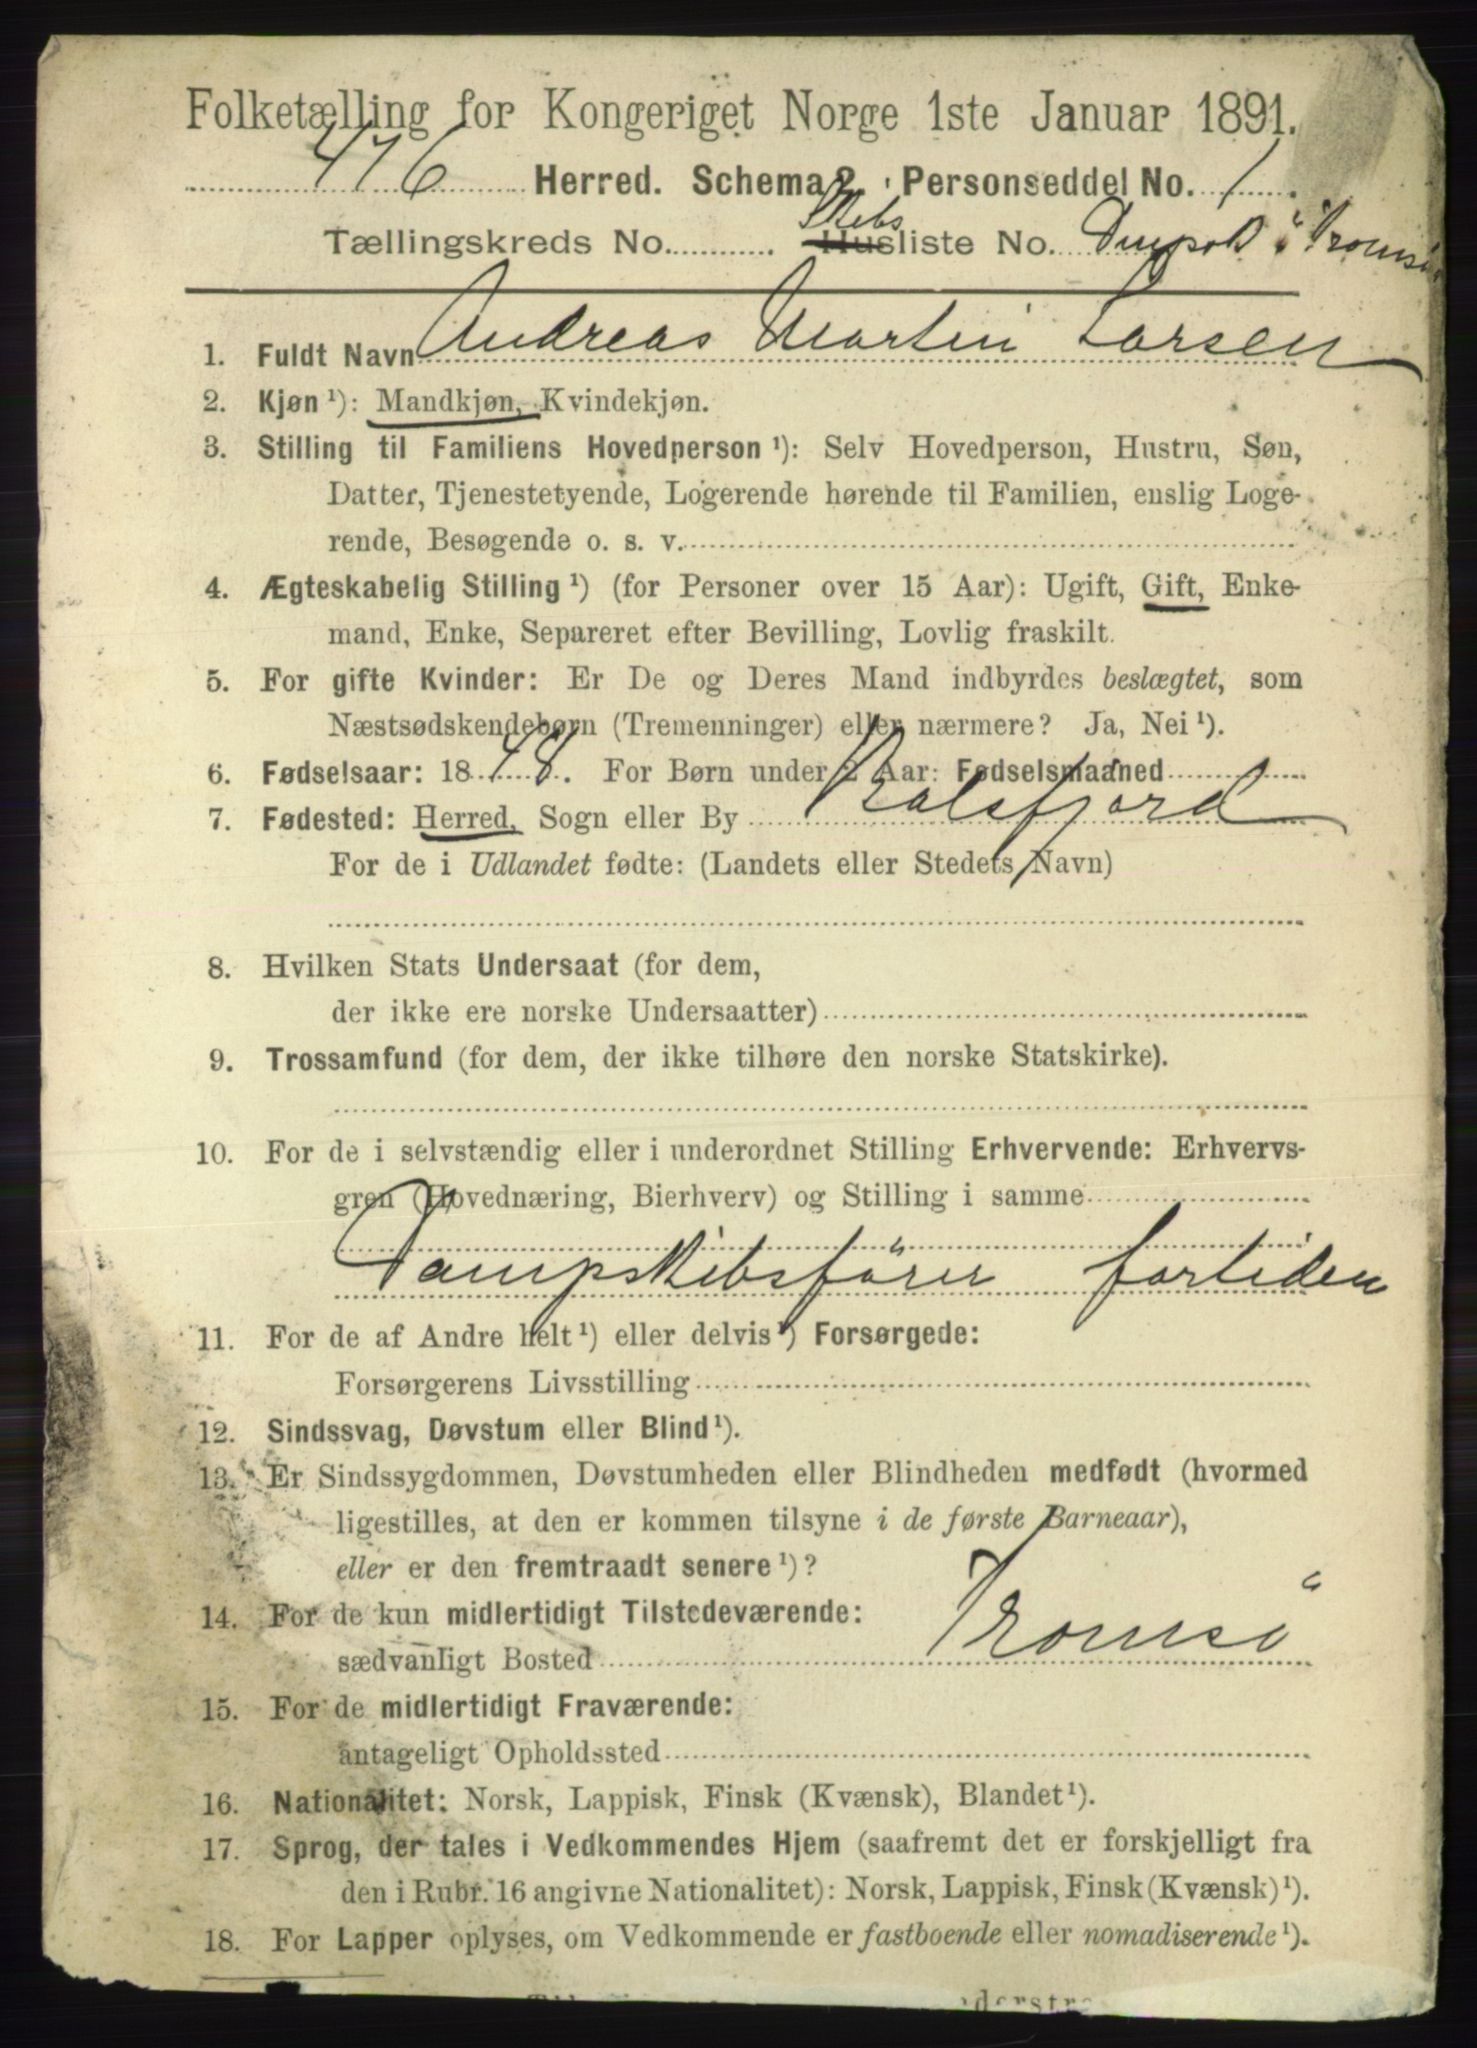 Folketælling for Kongeriget Norge 1ste Januar 1891.
476 Herred. Schema 2. Personseddel No. 1.
Tællingskreds No. Skibs Husliste No. Tromsö
1. Fuldt Navn Andreas Martin Larsen
2. Kjøn ¹): Mandkjøn, Kvindekjøn.
3. Stilling til Familiens Hovedperson ¹): Selv Hovedperson, Hustru, Søn,
Datter, Tjenestetyende, Logerende hørende til Familien, enslig Loge-
rende, Besøgende o. s. v.
4. Ægteskabelig Stilling ¹) (for Personer over 15 Aar): Ugift, Gift, Enke-
mand, Enke, Separeret efter Bevilling, Lovlig fraskilt.
5. For gifte Kvinder: Er De og Deres Mand indbyrdes beslægtet, som
Næstsødskendebørn (Tremenninger) eller nærmere? Ja, Nei ¹).
6. Fødselsaar: 1848. For Børn under 2 Aar: Fødselsmaaned
7. Fødested: Herred, Sogn eller By Balsfjord
For de i Udlandet fødte: (Landets eller Stedets Navn)
8. Hvilken Stats Undersaat (for dem,
der ikke ere norske Undersaatter)
9. Trossamfund (for dem, der ikke tilhøre den norske Statskirke).
10. For de i selvstændig eller i underordnet Stilling Erhvervende: Erhvervs-
gren (Hovednæring, Bierhverv) og Stilling i samme
Dampskibsförer fortiden
11. For de af Andre helt ¹) eller delvis ¹) Forsørgede:
Forsørgerens Livsstilling
12. Sindssvag, Døvstum eller Blind ¹).
13. Er Sindssygdommen, Døvstumheden eller Blindheden medfødt (hvormed
ligestilles, at den er kommen tilsyne i de første Barneaar),
eller er den fremtraadt senere ¹)?
14. For de kun midlertidigt Tilstedeværende:
sædvanligt Bosted Tromsö
15. For de midlertidigt Fraværende:
antageligt Opholdssted
16. Nationalitet: Norsk, Lappisk, Finsk (Kvænsk), Blandet ¹).
17. Sprog, der tales i Vedkommendes Hjem (saafremt det er forskjelligt fra
den i Rubr. 16 angivne Nationalitet): Norsk, Lappisk, Finsk (Kvænsk) ¹).
18. For Lapper oplyses, om Vedkommende er fastboende eller nomadiserende ¹).